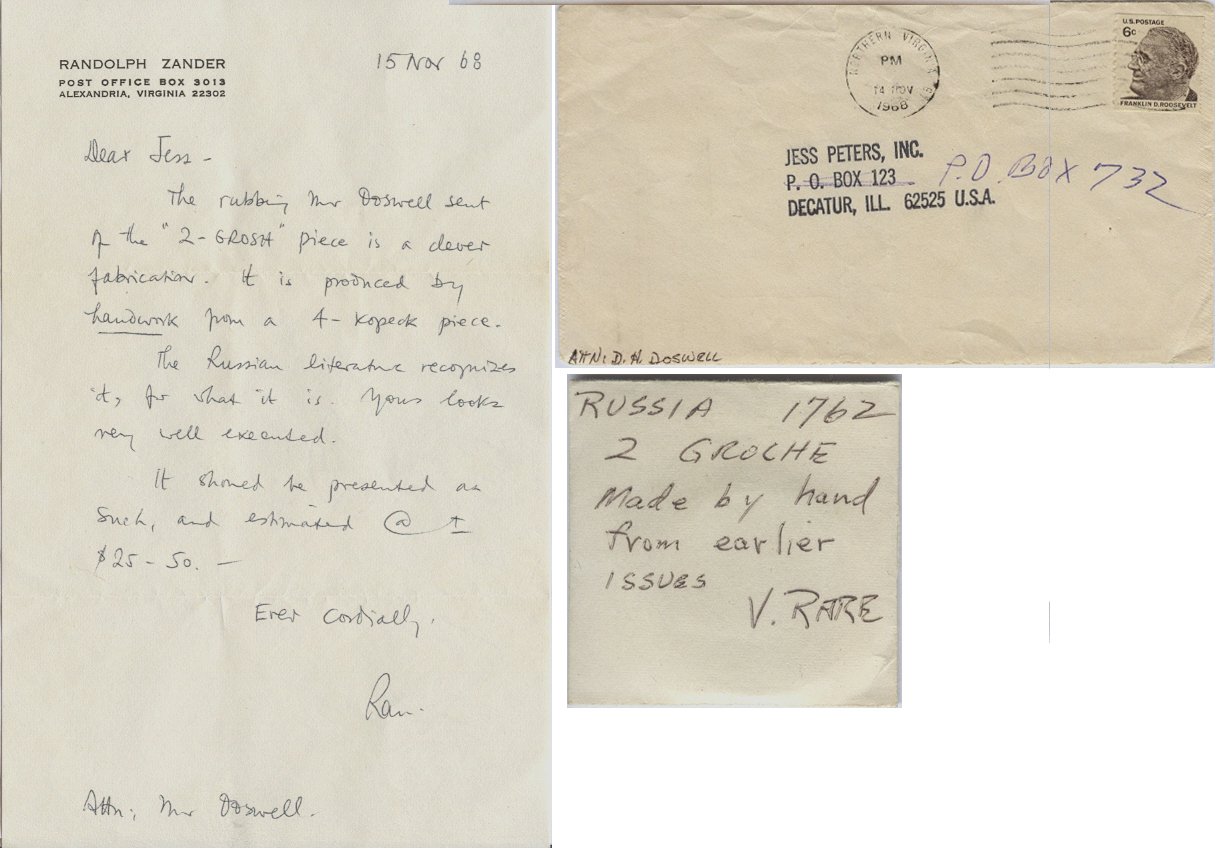 RANDOLPH ZANDER
POST OFFICE BOX 3013
ALEXANDRIA, VIRGINIA 22302
15 Nov 68
Dear Jess -
The rubbing Mr Doswell sent
of the "2-GROSH" piece is a clever
fabrication. It is produced by
handwork from a 4-kopeck piece.
The Russian literature recognizes
it, for what it is. Yours looks
very well executed.
It should be presented as
such, and estimated @ ±
$25-50. —
Ever cordially,
Ran.
Attn: Mr Doswell.
NORTHERN VIRGINIA
PM
14 NOV
1968
U.S. POSTAGE
6c
FRANKLIN D. ROOSEVELT
JESS PETERS, INC.
P. O. BOX 123 P.O. BOX 732
DECATUR, ILL. 62525 U.S.A.
Attn: D. H. DOSWELL
RUSSIA 1762
2 GROCHE
Made by hand
from earlier
ISSUES
V. RARE